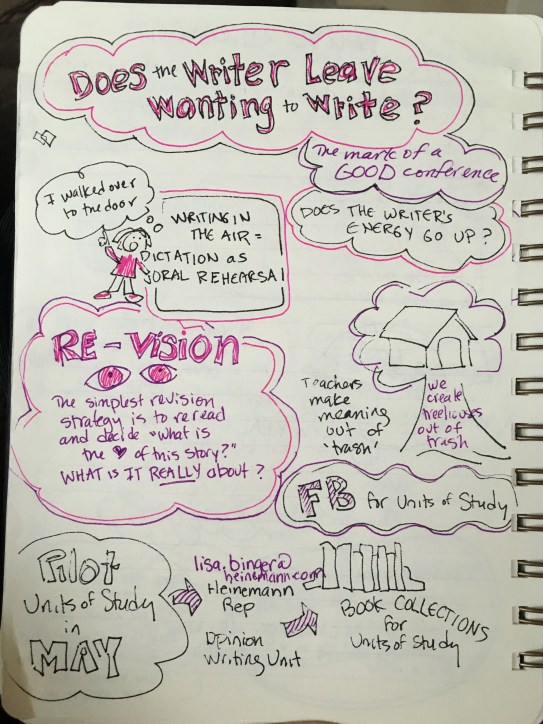 DOES the WRITER LEAVE
WANTING to WRITE?
The mark of a
GOOD conference
DOES THE WRITER'S
ENERGY GO UP?
I walked over
to the door
WRITING IN
THE AIR =
DICTATION as
ORAL REHEARSAl
RE-VISION
The simplest revision
strategy is to reread
and decide "what is
the ♥ of this story?"
WHAT IS IT REALLY about?
Teachers
make
meaning
out of
'trash'
we
create
treehouses
out of
trash
FB for Units of Study
Pilot
Units of Study
in
MAY
lisa.bingen@
heinemann.com
Heinemann
Rep
Opinion
Writing Unit
BOOK COLLECTIONS
for
Units of Study